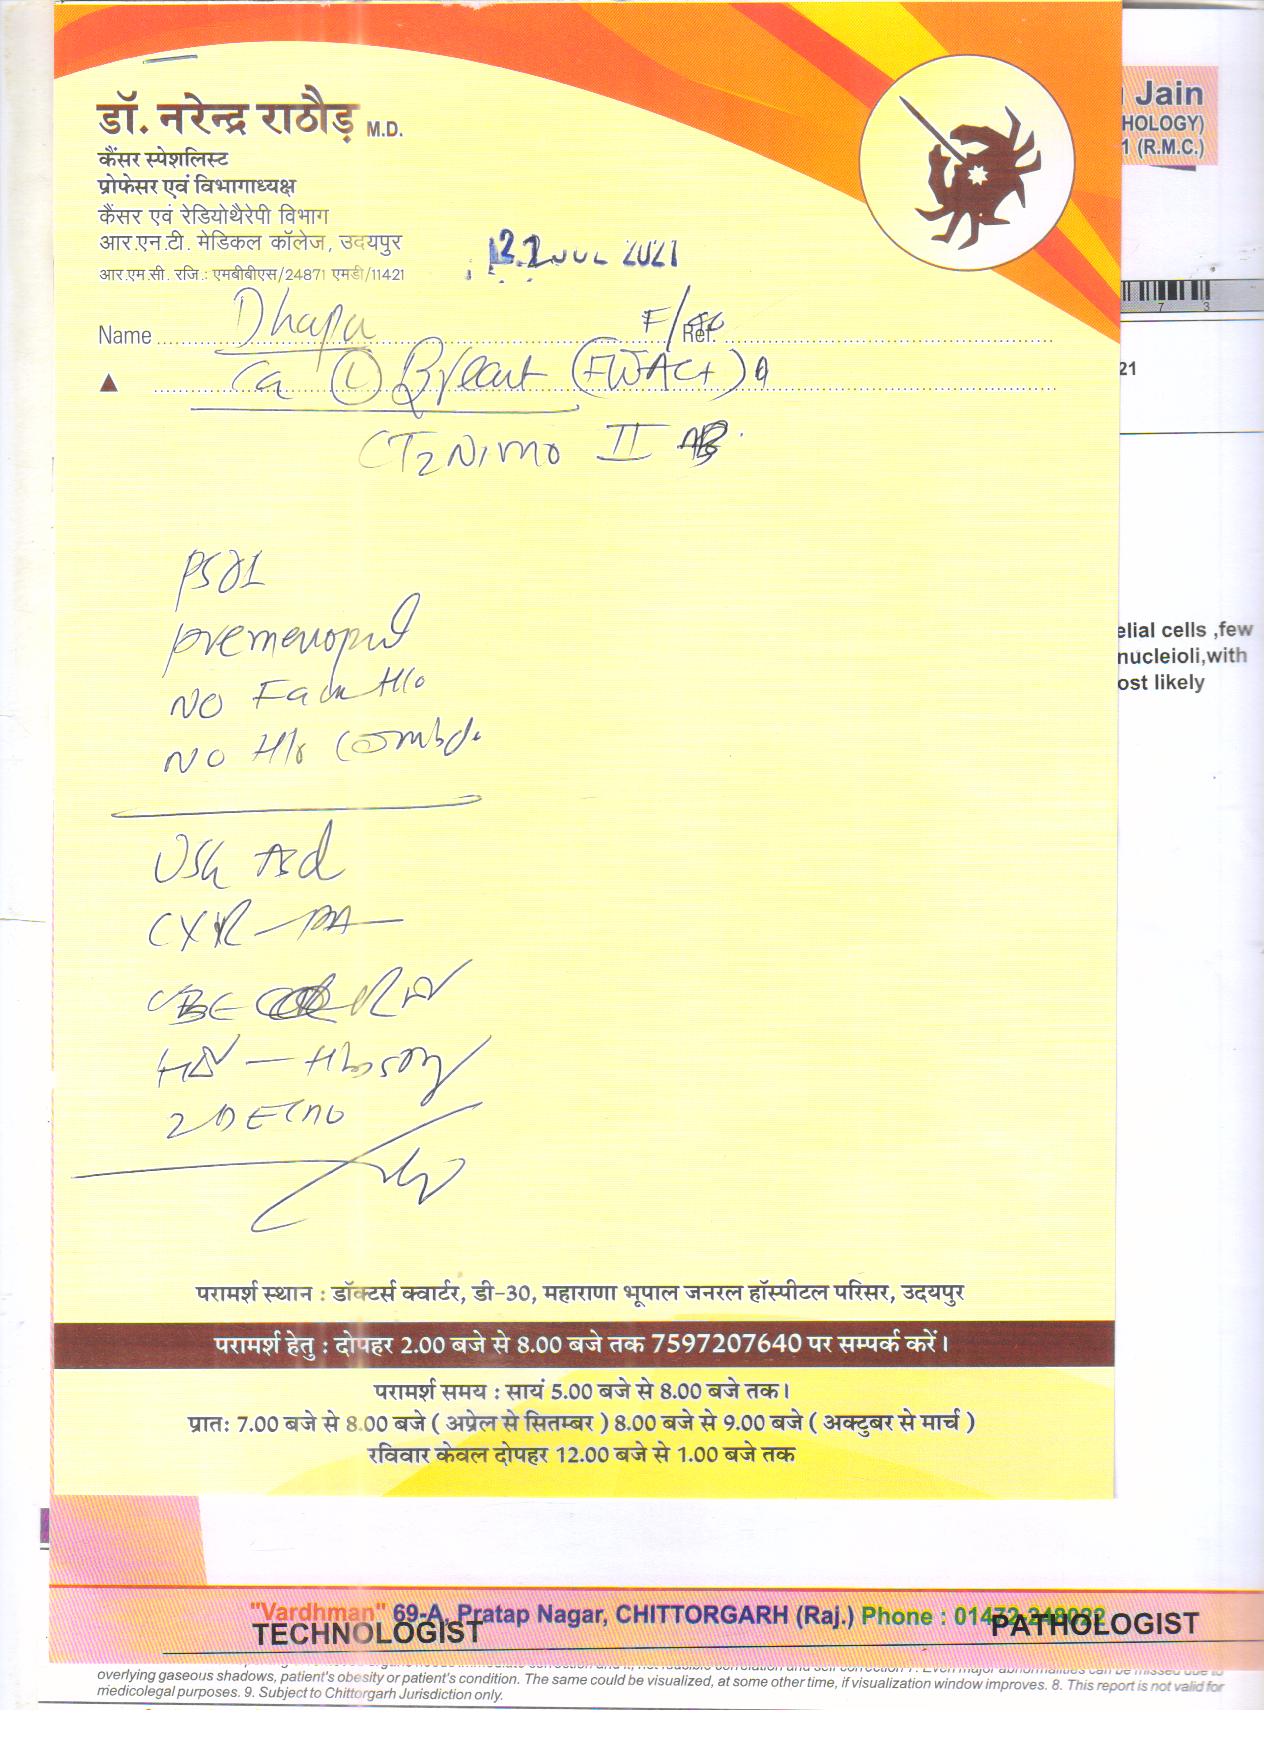 डॉ. नरेन्द्र राठौड़ M.D.
कैंसर स्पेशलिस्ट
प्रोफेसर एवं विभागाध्यक्ष
कैंसर एवं रेडियोथैरेपी विभाग
आर.एन.टी. मेडिकल कॉलेज, उदयपुर
आर.एम.सी. रजि.: एमबीबीएस/24871 एमडी/11421
Jain
HOLOGY)
1 (R.M.C.)
7 3
2 JUL 2021
Name Dhapu F/ Ref.
21
Ca (L) Breast
CT2N1M0 II
elial cells ,few
nucleioli,with
ost likely
PS01
NO Fam H/o
NO H/o
USG Abd
CXR - PA
CBC
2D Echo
परामर्श स्थान : डॉक्टर्स क्वार्टर, डी-30, महाराणा भूपाल जनरल हॉस्पीटल परिसर, उदयपुर
परामर्श हेतु : दोपहर 2.00 बजे से 8.00 बजे तक 7597207640 पर सम्पर्क करें।
परामर्श समय : सायं 5.00 बजे से 8.00 बजे तक।
प्रातः 7.00 बजे से 8.00 बजे ( अप्रेल से सितम्बर ) 8.00 बजे से 9.00 बजे ( अक्टुबर से मार्च )
रविवार केवल दोपहर 12.00 बजे से 1.00 बजे तक
"Vardhman" 69-A, Pratap Nagar, CHITTORGARH (Raj.) Phone : 01472-248022
TECHNOLOGIST PATHOLOGIST
overlying gaseous shadows, patient's obesity or patient's condition. The same could be visualized, at some other time, if visualization window improves. 8. This report is not valid for
medicolegal purposes. 9. Subject to Chittorgarh Jurisdiction only.